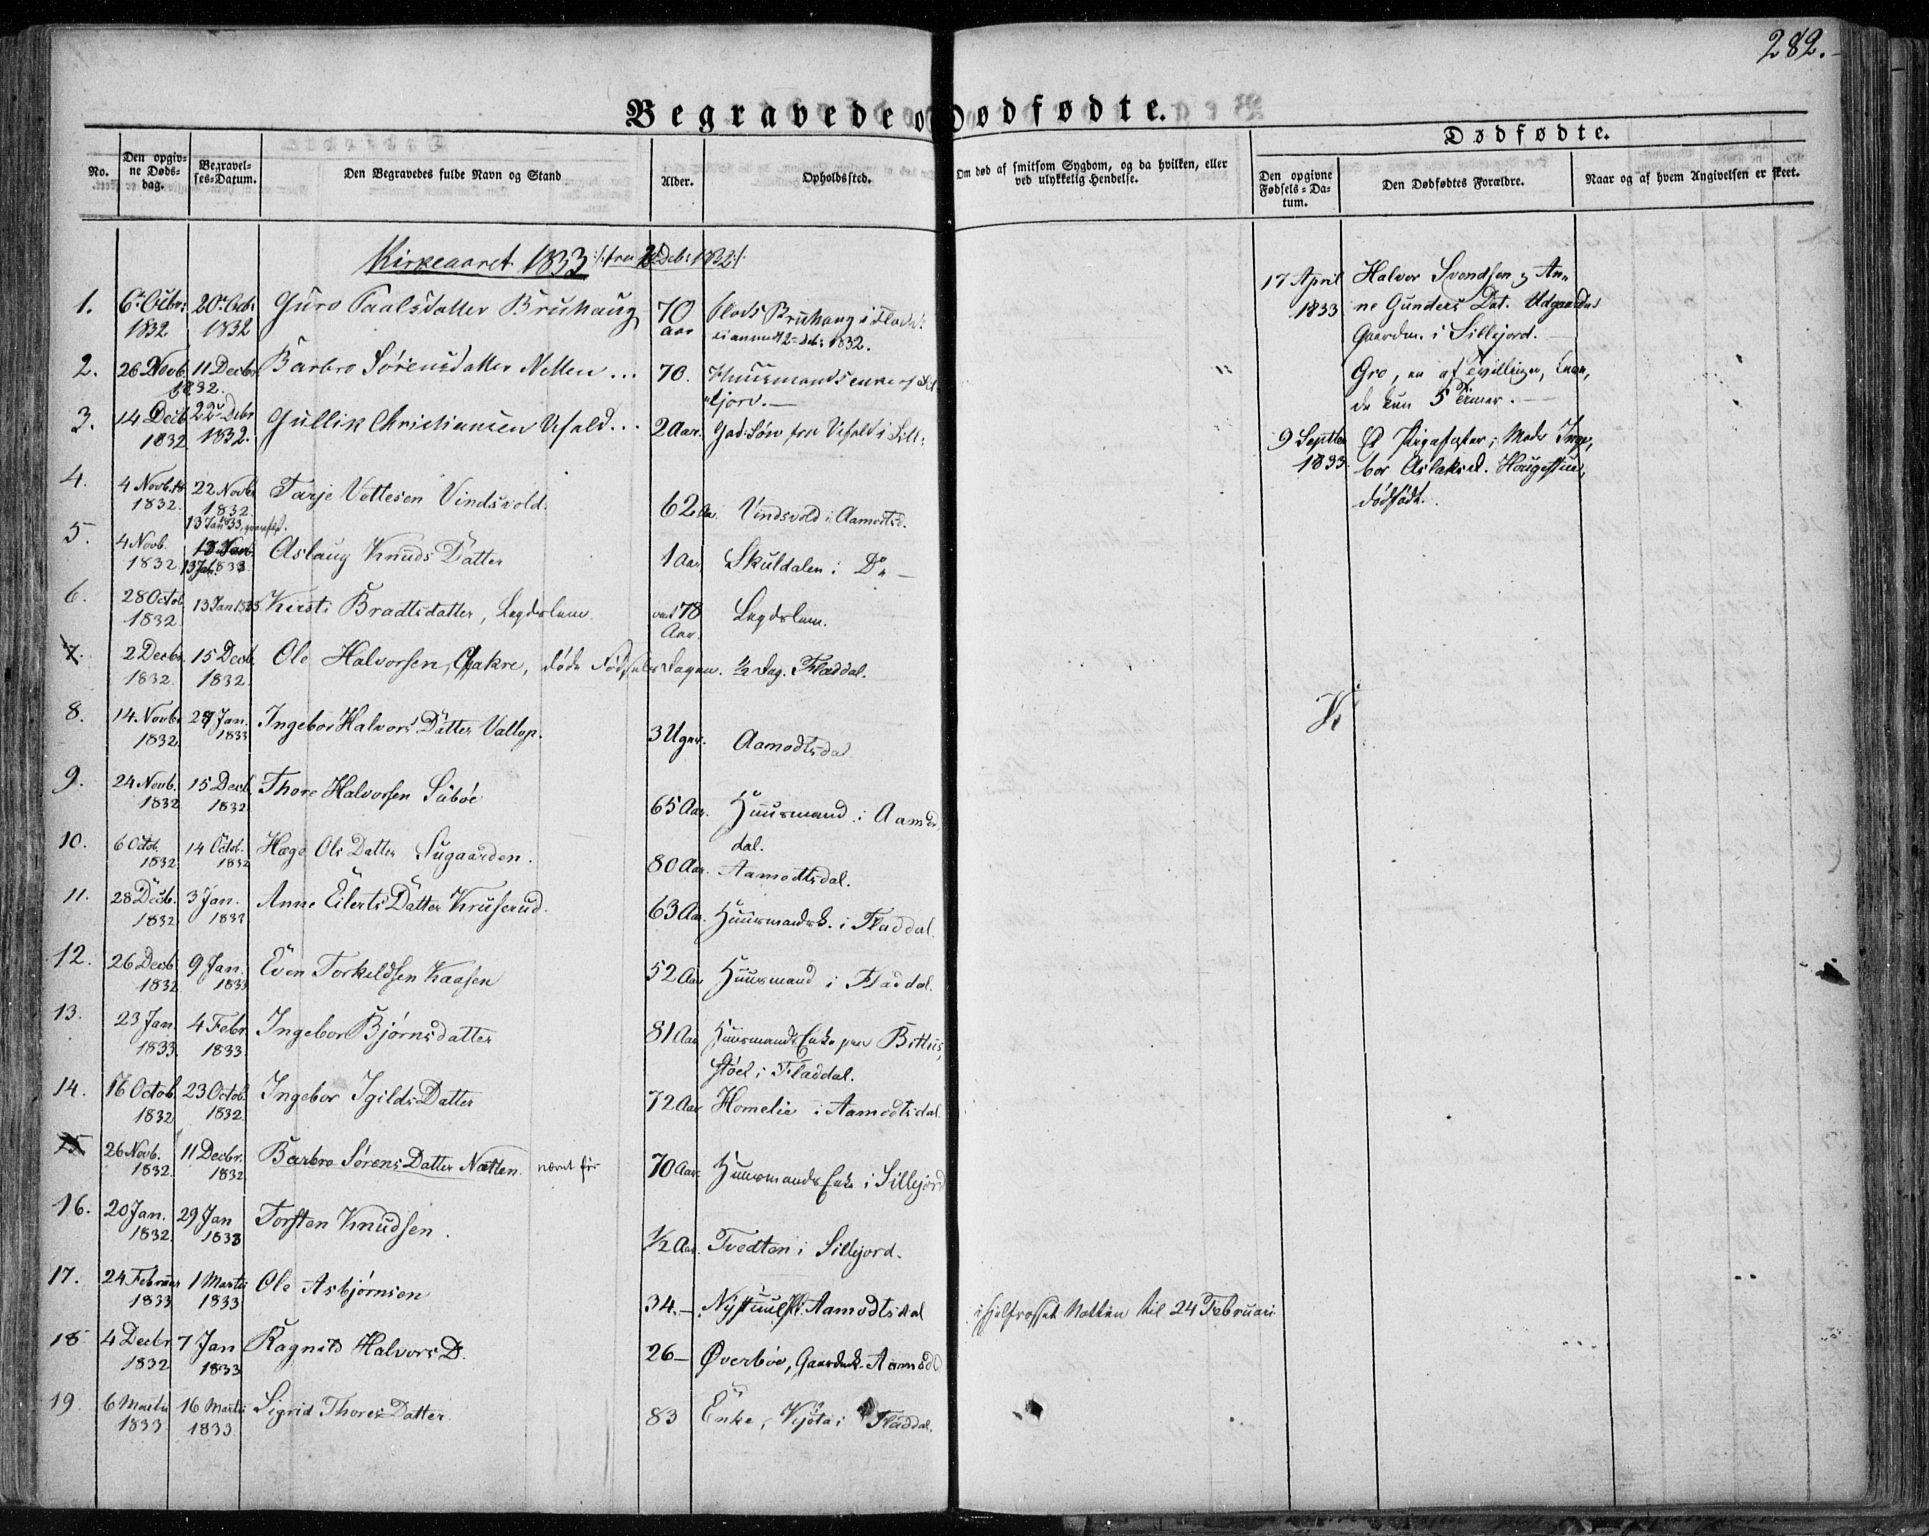 282.
Begravede o Dødfødte.
No.
Den opgiv-
ne Døds-
dag.
Begravel-
ses-Datum.
Den Begravedes fulde Navn og Stand
Alder.
Opholdssted.
Om død af smitsom Sygdom, og da hvilken, eller
ved ulykkelig Hendelse.
Dødfødte.
Den opgivne
Fødsels-Da-
tum.
Den Dødfødtes Forældre.
Naar og af hvem Angivelsen er skeet.
Kirkeaaret 1833 /: fra 2 Deb: 1832 :/
1. 6 Octbr: 1832 20 Octb: 1832 Guro Paalsdatter Bruhaug 70 aar Plads Bruhaug i Flad:
anmeldt 2 Deb: 1832.
2. 26 Novb. 1832. 11 Decbr Barbro Sørensdatter Netten ... 70. Huusmandsenke i Sil-
lejord. —
3. 14 Decb. 1832 22 Debr 1832. Gullik Christiansen Ufald ... 2 Aar. Gad: Søn fra Ufald i Sill:
4. 4 Novb. 1832. 22 Novbr 1832. Tarje Vettesen Vindsvold. 62 Aar. Vindsvold i Aamotsd.
5. 4 Novb. 1832 13 Jan 33 13 Jan. 1833. Aslaug Knuds Datter 1 Aar Skuldalen i Do —
6. 28 Octob. 1832 13 Jan 1833 Kirsti Bradtsdatter, Legdslem. 78 Aar. Legdslem.
7. 2 Decbr. 1832. 15 Decb. 1832. Ole Halvorsen, døde Fødselsdagen. ½ Dag. Fladdal.
8. 14. Novb. 1832. 27 Jan. 1833 Ingebor Halvors Datter Valtop. 3 Uger. Aamodtsdal
9. 24 Novb. 1832 15 Decb. 1832. Thore Halvorsen Sübøe 65 Aar. Huusmand i Aamodts-
dal.
10. 6 Octob. 1832. 14 Octob. 1832 Hæge Ols Datter Sugaarden. 80 Aar. Aamodtsdal.
11. 28 Decb. 1832. 3 Jan. 1833 Anne Eilerts Datter Kruserud. 63 Aar. Huusmandsk. i Fladdal.
12. 26 Decb. 1832 9 Jan. 1833 Even Torkeldsen Kaasen 52 Aar Huusmand i Fladdal.
13. 23 Jan. 1833. 4 Febr. 1833. Ingebor Bjørnsdatter 81 Aar Huusmands Enke paa Bittus-
støel i Fladdal.
14. 16 Octob. 1832 23 Octob. 1832. Ingebor Igilds Datter 72 Aar Homelie i Aamodtsdal.
15 26 Novb. 1832. 11 Decbr. 1832 Barbro Sørens Datter Nætten. nævnt før 70 Aar. Huusmands Enke i Sillejord
16. 20 Jan. 1832. 29 Jan 1833 Torsten Knudsen. ½ Aar. Tvedten i Sillejord.
17. 24 Februar 1833 1 Martii 1833 Ole Asbjørnsen 34. — Nystuul i Aamodtsdal ihjelfrosset Natten til 24 Februari
18 4 Decbr 1832 7 Jan 1833 Ragnild Halvors D. 26 — Øverbøe, Gaardmk. Aamodtd
19. 6 Martii 1833 16 Martii 1833 Sigrid Thores Datter. 83 Enke, Kjøta i Fladdal.
17 April 1833 Halvor Svendsen og An-
ne Gunders Dat. Udgaardens
Gaardm. i Sillejord. —
Gro, en af Tvillinger,
kun 5 —
9 Septbr 1833. Et Pigefoster; Moder Inge-
bor Aslaksd. Haugestuen,
dødfødt.